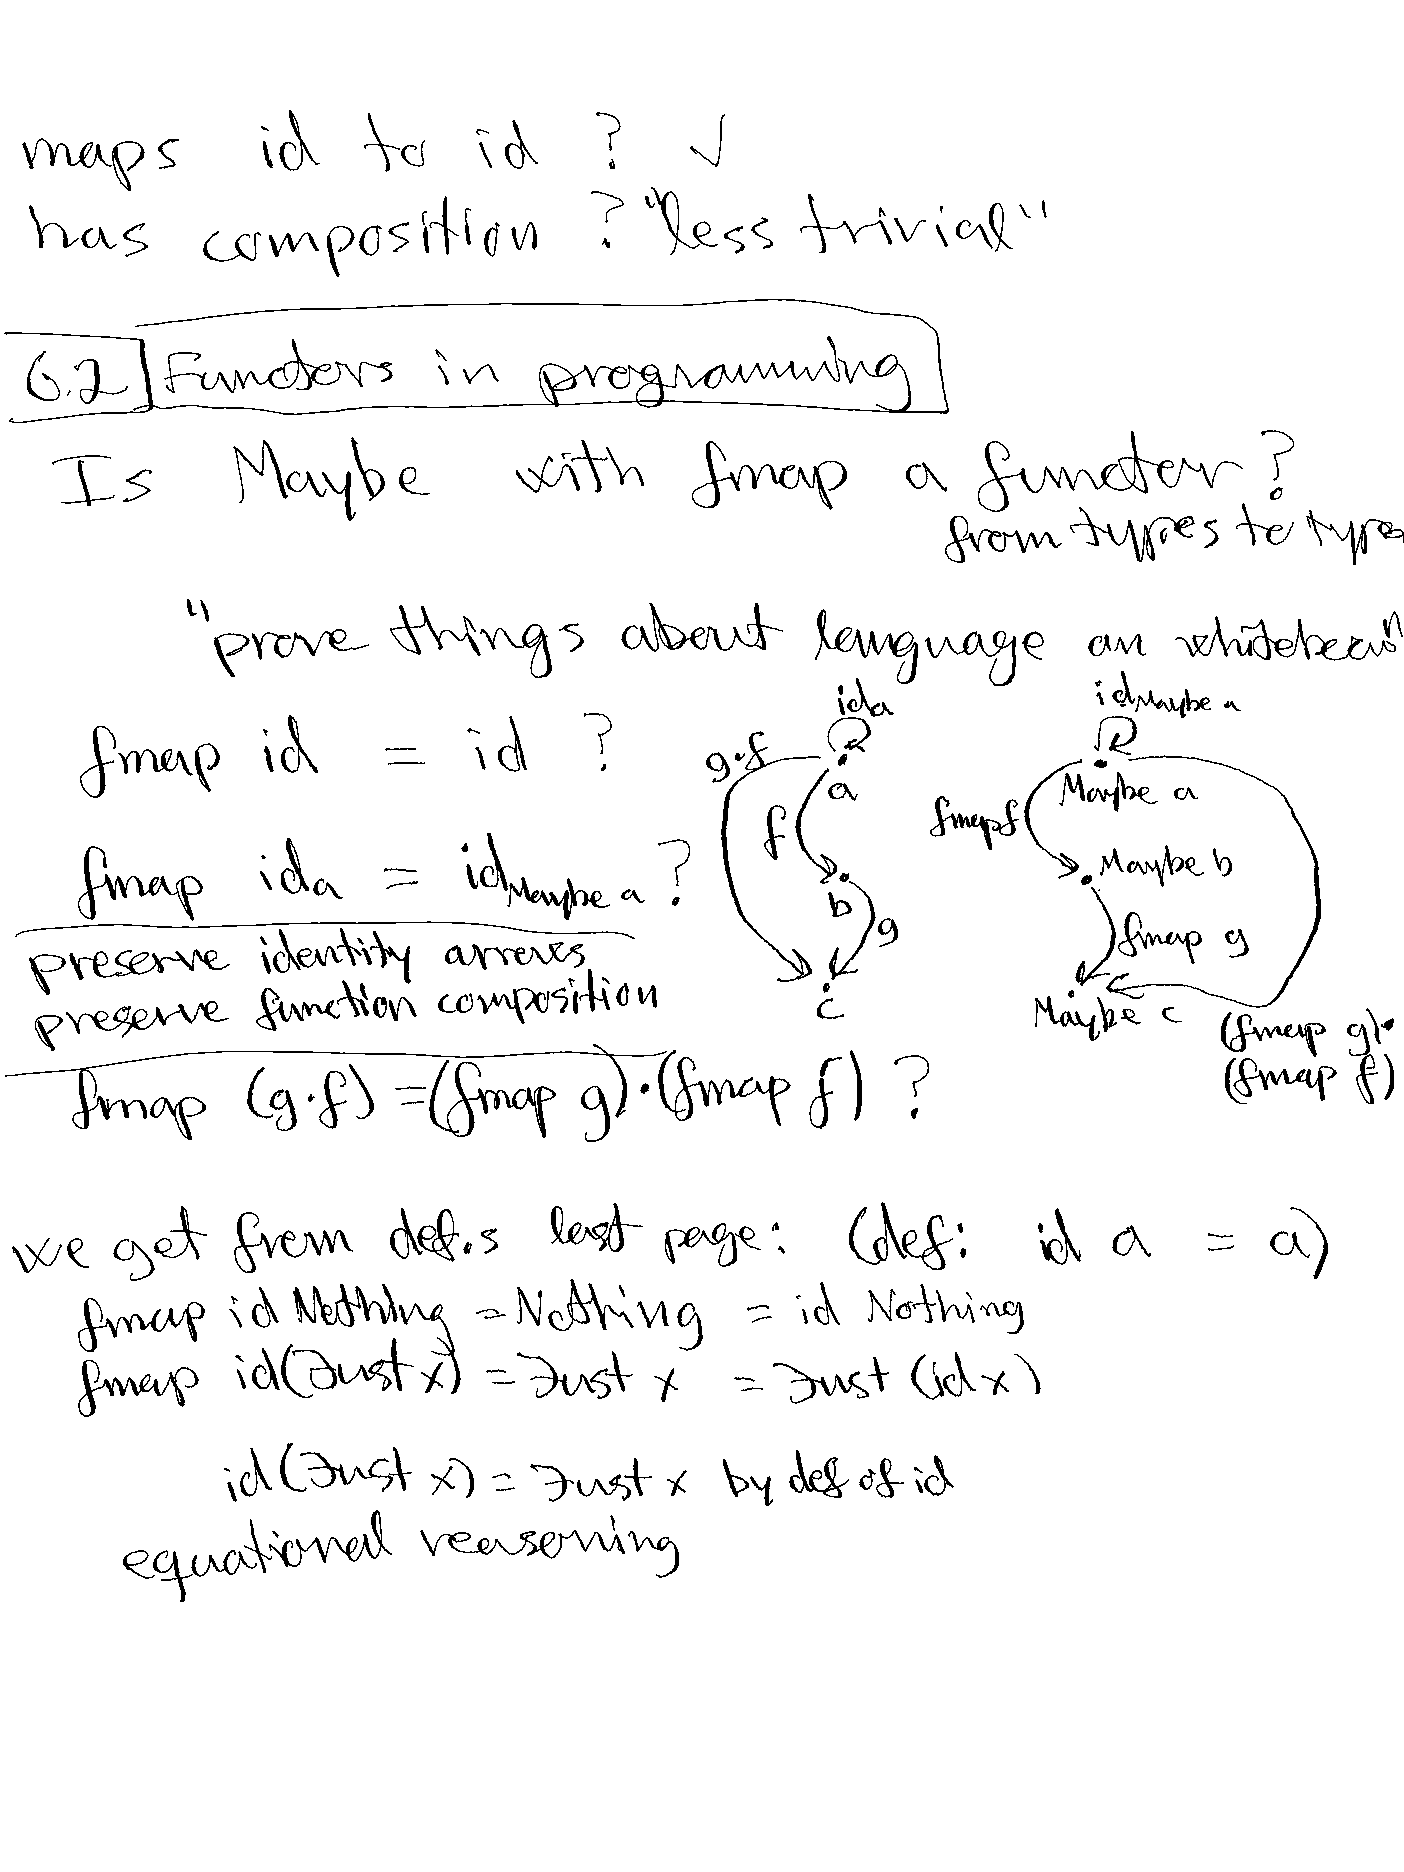 maps id to id ? ✓
has composition ? "less trivial"
6.2 Functors in programming
Is Maybe with fmap a functor?
from types to types
"prove things about language on whiteboard"
fmap id = id ?
fmap ida = idMaybe a ?
preserve identity arrows
preserve function composition
fmap (g.f) = (fmap g).(fmap f) ?
ida
g.f
a
f
b
g
c
idMaybe a
Maybe a
fmap f
Maybe b
fmap g
Maybe c
(fmap g).
(fmap f)
we get from def.s last page: (def: id a = a)
fmap id Nothing = Nothing = id Nothing
fmap id (Just x) = Just x = Just (id x)
id (Just x) = Just x by def of id
equational reasoning